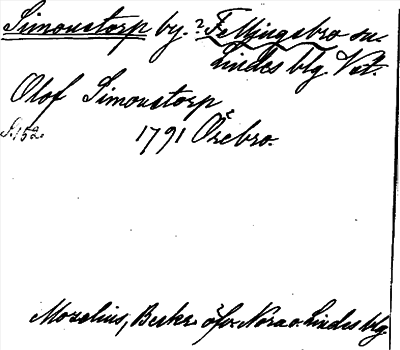 Simonstorp by. ? Fellingsbro sn.
Lindes blg Vst.
Olof Simonstorp
S. 152. 1791 Örebro.
Mozelius, Beskr. öfv. Nora o. Lindes blg